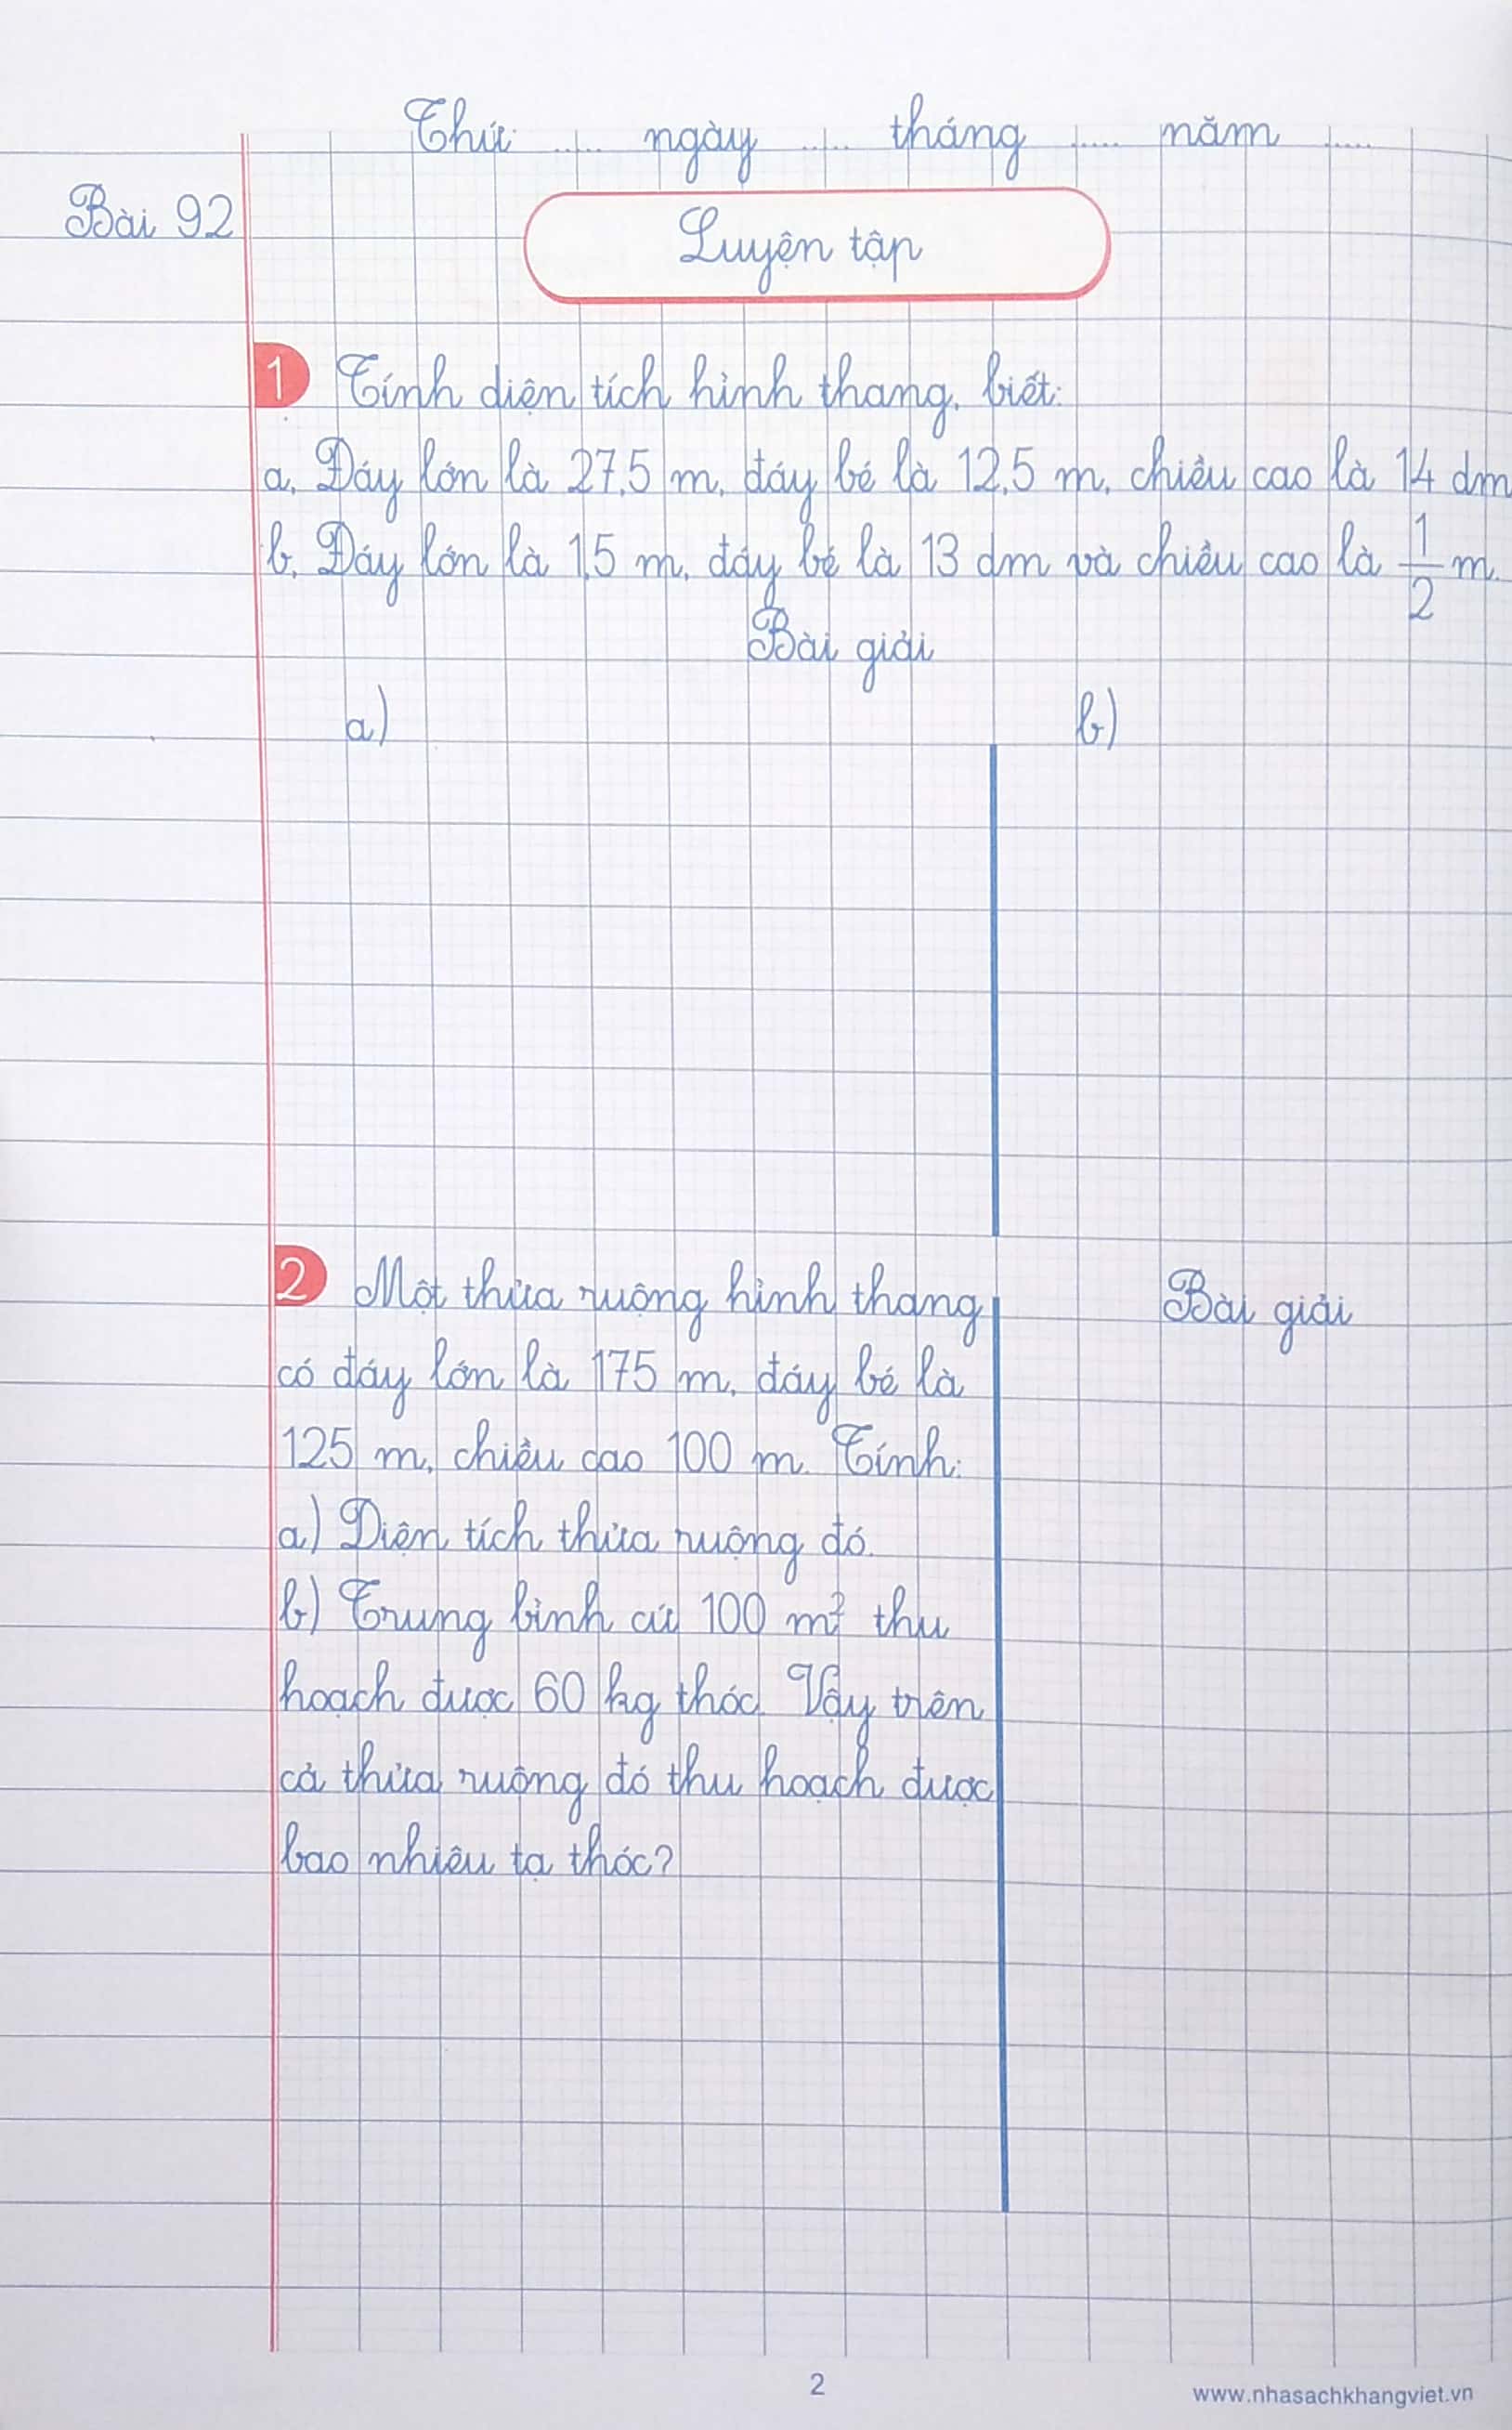 Thứ ..... ngày ..... tháng ..... năm .....
Bài 92
Luyện tập
1 Tính diện tích hình thang, biết:
a. Đáy lớn là 27,5 m, đáy bé là 12,5 m, chiều cao là 14 dm
b. Đáy lớn là 1,5 m, đáy bé là 13 dm và chiều cao là 1/2 m.
Bài giải
a) b)
2 Một thửa ruộng hình thang
có đáy lớn là 175 m, đáy bé là
125 m, chiều cao 100 m. Tính:
a) Diện tích thửa ruộng đó.
b) Trung bình cứ 100 m² thu
hoạch được 60 kg thóc. Vậy trên
cả thửa ruộng đó thu hoạch được
bao nhiêu tạ thóc?
Bài giải
2
www.nhasachkhangviet.vn